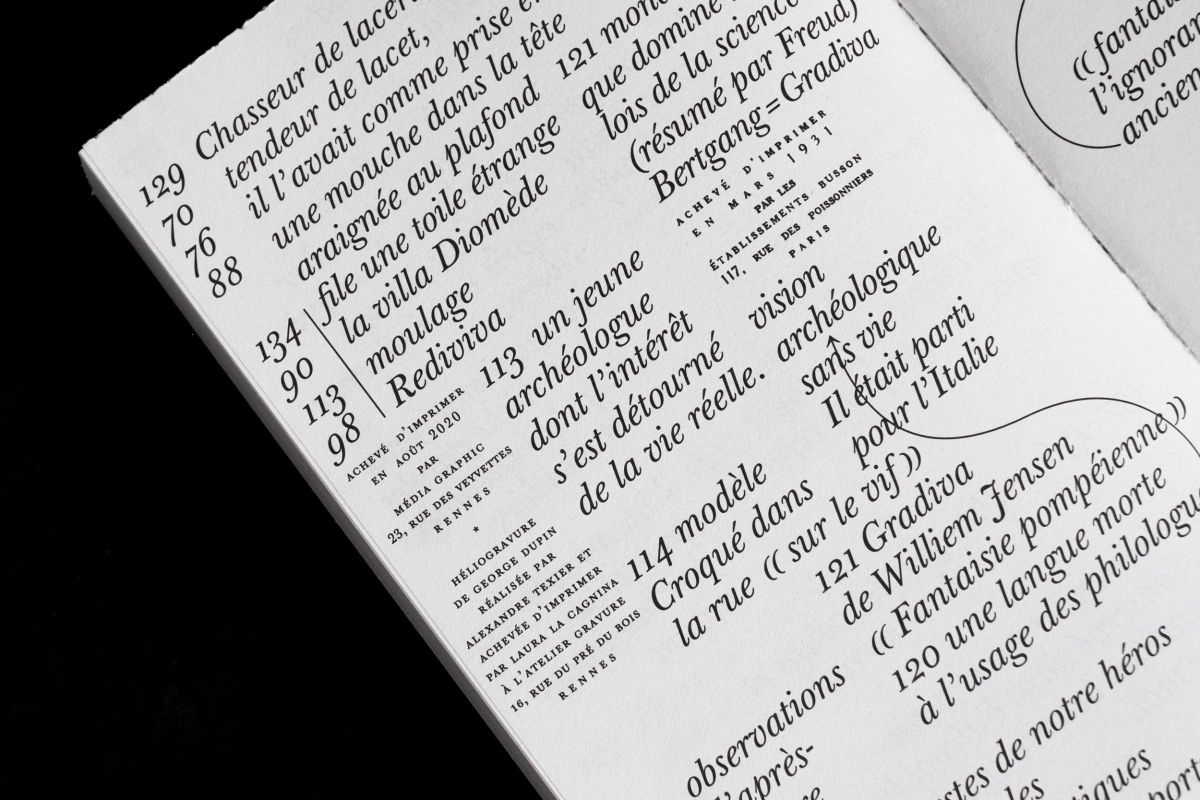 Chasseur de
tendeur de lacet,
129 il l'avait comme prise
70 une mouche dans la tête
76 araignée au plafond
88 file une toile étrange
la villa Diomède
134 moulage
90 Rediviva
113
98
ACHEVÉ D'IMPRIMER
EN AOÛT 2020
PAR
MÉDIA GRAPHIC
23, RUE DES VEYVETTES
RENNES
*
HÉLIOGRAVURE
DE GEORGE DUPIN
RÉALISÉE PAR
ALEXANDRE TEXIER ET
ACHEVÉE D'IMPRIMER
PAR LAURA LA CAGNINA
À L'ATELIER GRAVURE
16, RUE DU PRÉ DU BOIS
RENNES
121
que domine
lois de la science
(résumé par Freud)
Bertgang=Gradiva
ACHEVÉ D'IMPRIMER
EN MARS 1931
PAR LES
ÉTABLISSEMENTS BUSSON
117, RUE DES POISSONNIERS
PARIS
113 un jeune
archéologue
dont l'intérêt
s'est détourné
de la vie réelle.
vision
archéologique
sans vie
Il était parti
pour l'Italie
114 modèle
Croqué dans
la rue (( sur le vif))
121 Gradiva
de Williem Jensen
(( Fantaisie pompéienne))
120 une langue morte
à l'usage des
observations
de notre héros
((
ancien